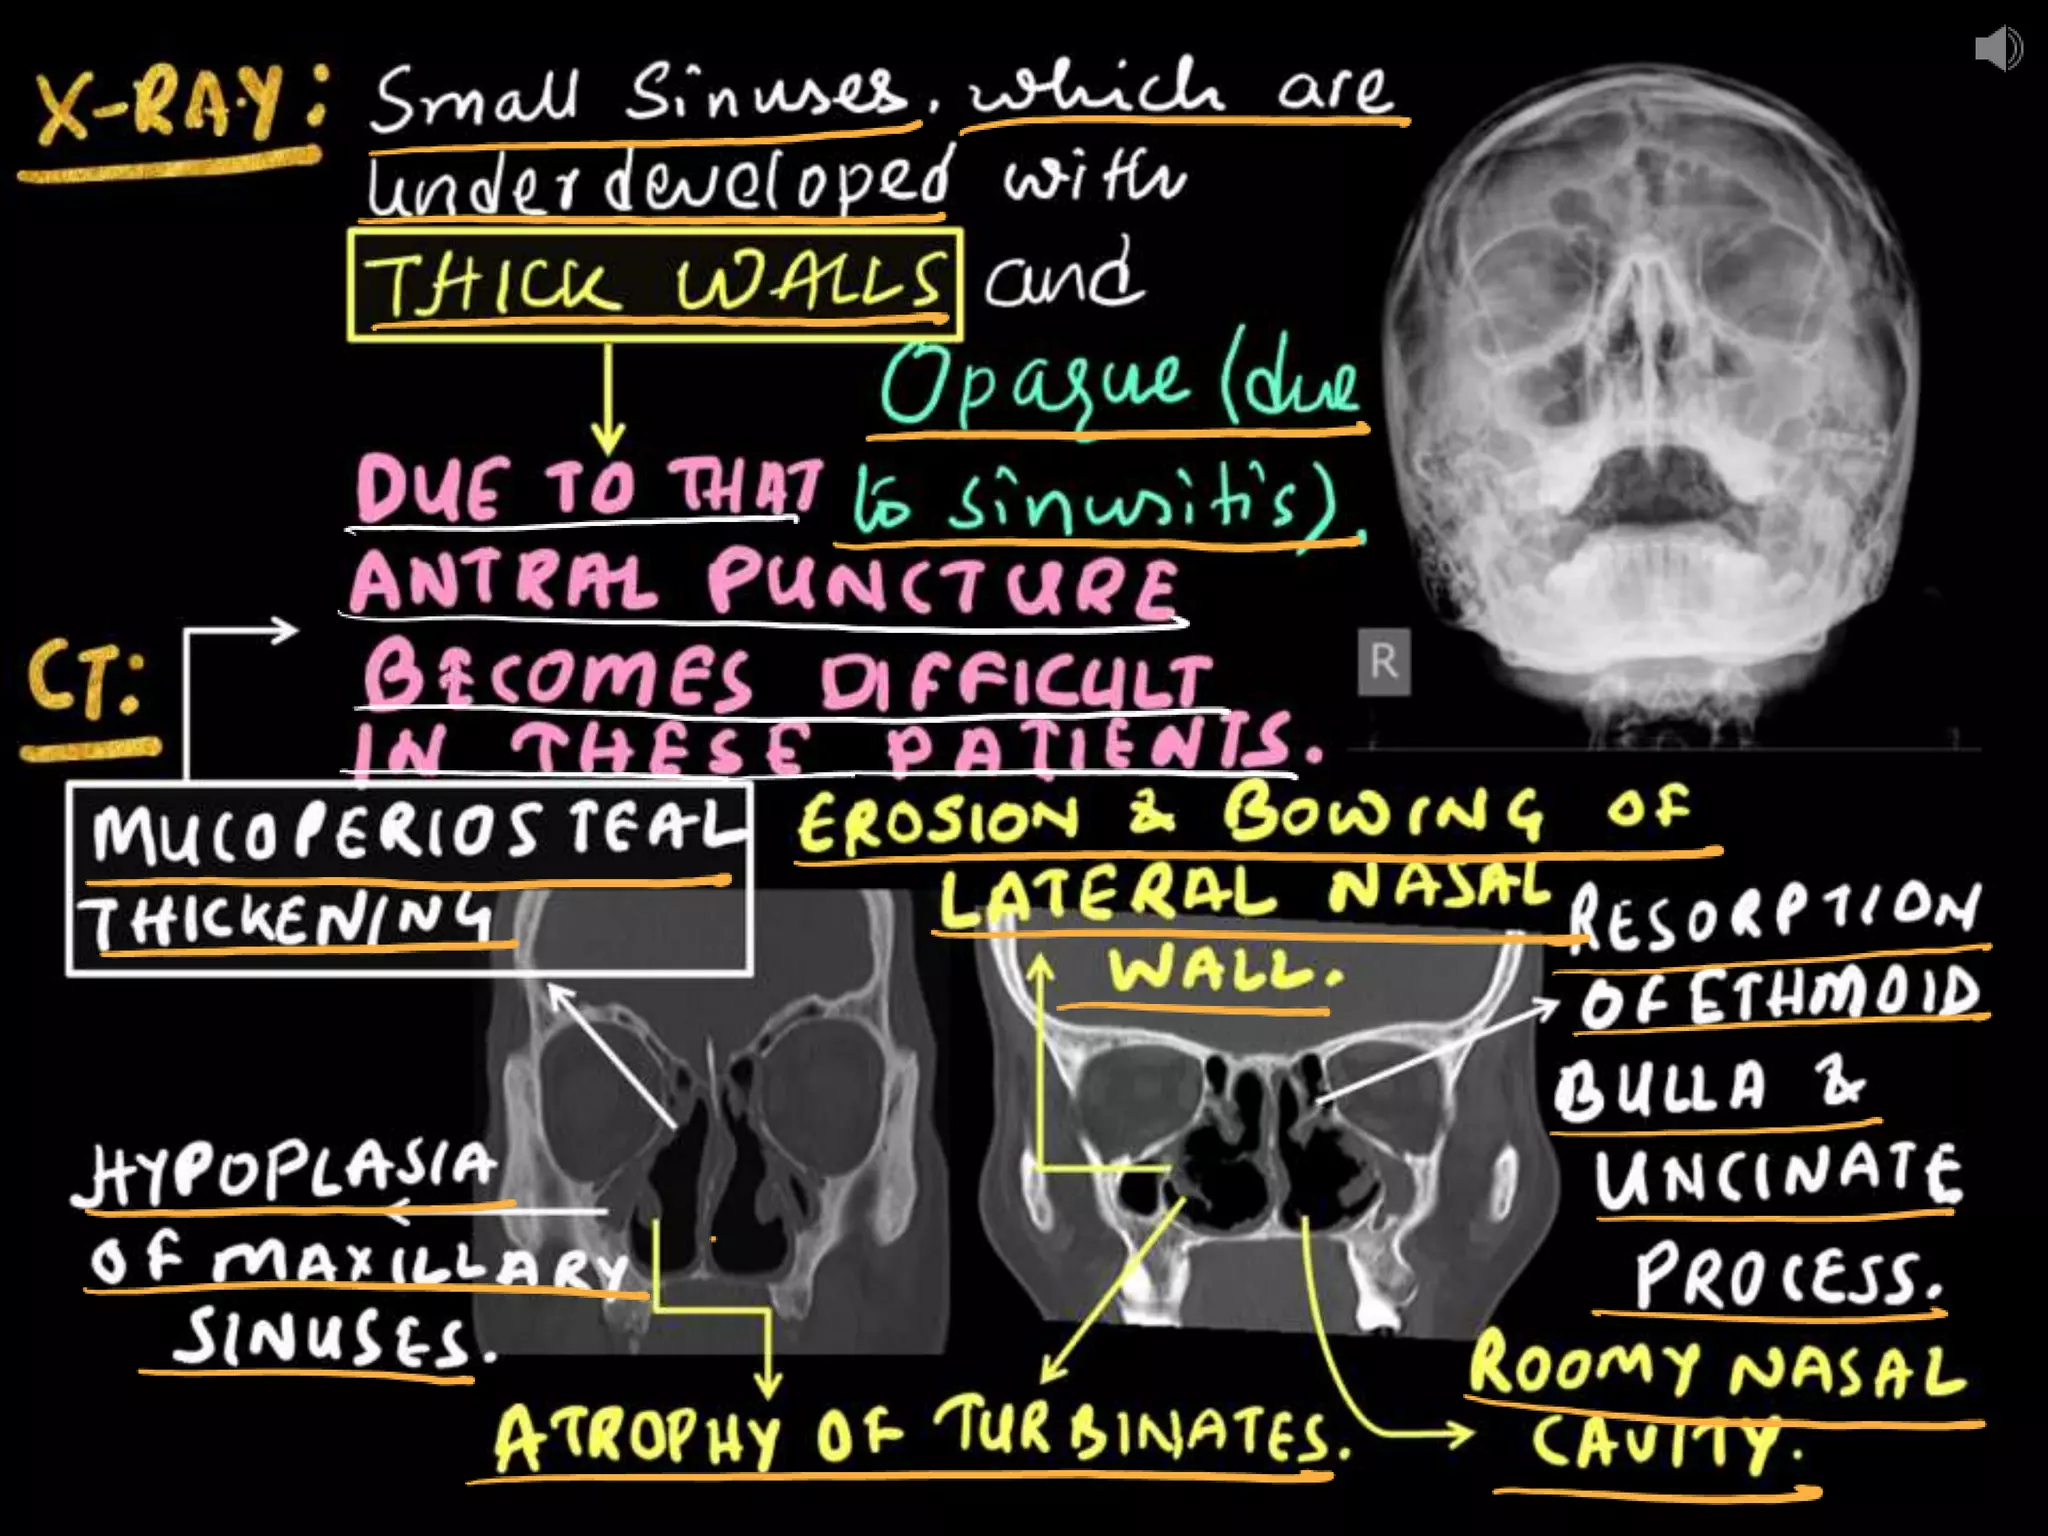 X-RAY: Small Sinuses. which are
underdeveloped with
THICK WALLS and
Opaque (due
to sinusitis).
DUE TO THAT
ANTRAL PUNCTURE
BECOMES DIFFICULT
IN THESE PATIENTS.
R
CT:
MUCOPERIOSTEAL
THICKENING
EROSION & BOWING OF
LATERAL NASAL
WALL.
RESORPTION
OF ETHMOID
BULLA &
UNCINATE
PROCESS.
HYPOPLASIA
OF MAXILLARY
SINUSES.
ATROPHY OF TURBINATES.
ROOMY NASAL
CAVITY.